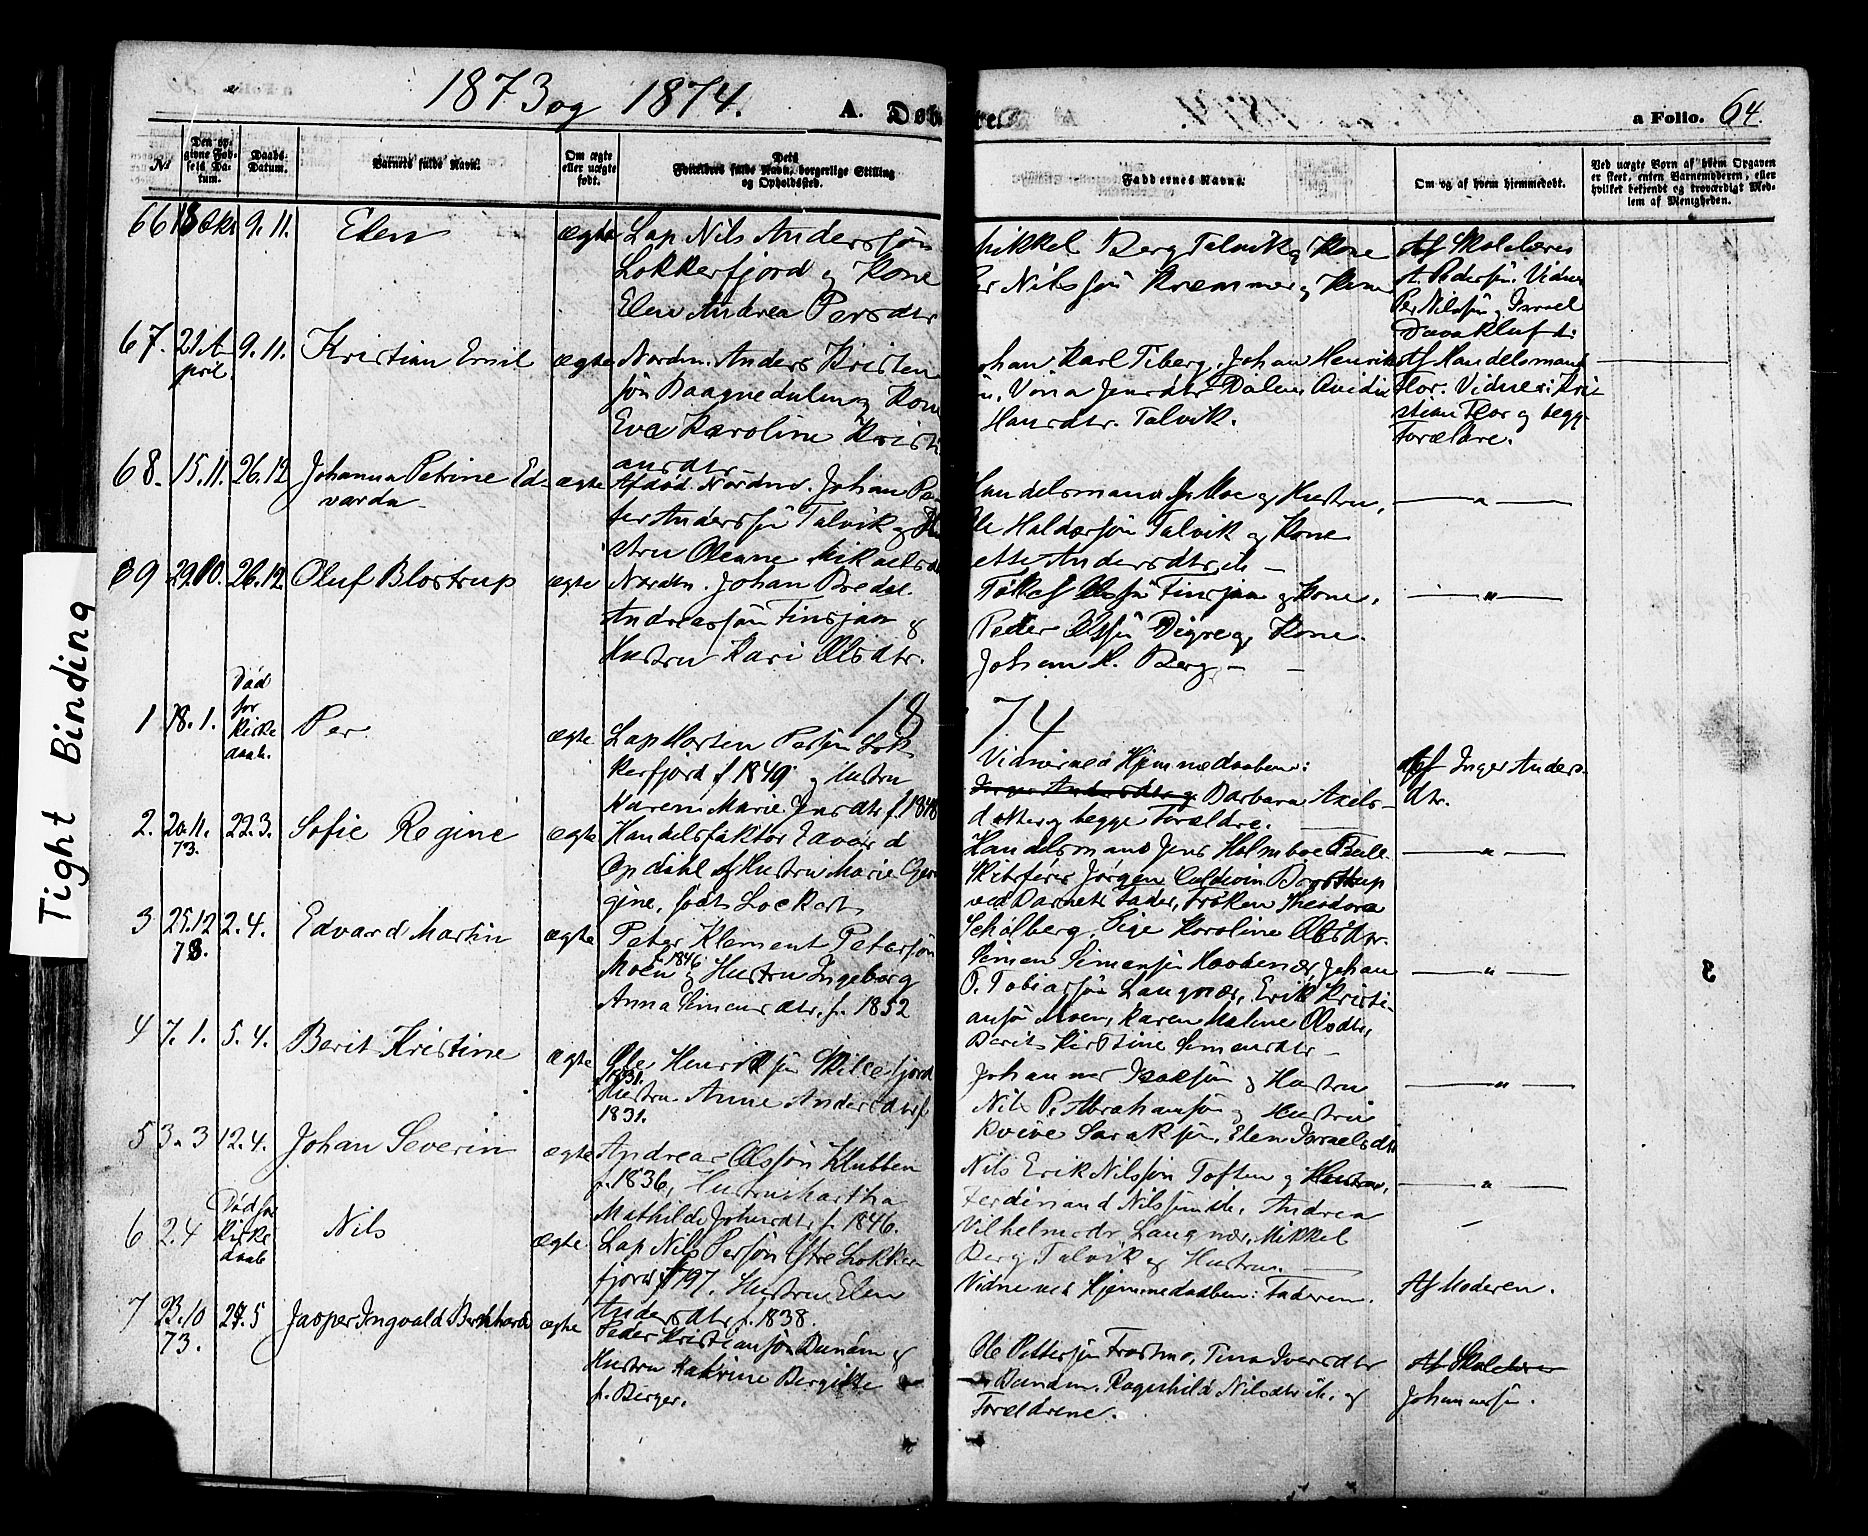 1873 og 1874.
A. Døb
te.
a Folio. 64.
No
Den op-
givne Fød-
sels Da-
tum.
Daabs-
Datum.
Barnets fulde Navn.
Om ægte
eller uægte
født.
Dets
Forældres fulde Navn, borgerlige Stilling
og Opholdssted.
Faddernes Navne.
Om og af hvem hjemmedøbt.
Ved uægte Børn af hvem Opgaven
er skeet, enten Barnemoderen, eller
hvilket bekjendt og troværdigt Med-
lem af Menigheden.
66 18 Okt 9.11. Elen ægte Lap Nils Anderssøn
Lokkerfjord og Kone
Elen Andrea Persdtr
Mikkel Berg Talvik og Kone
er Nilssøn Kræmmer og Kone
Af Skolelærer
A. Pedersøn. Vidner
Per Nilssøn og Israel
67. 21 A-
pril. 9.11. Kristian Emil ægte Nordm. Anders Kristen
søn og Kone
Eva Karoline Kristi
ansdtr
ohan Karl Tiberg, Johan Henrik
n, Vona Jensdtr Dalen,
Hansdtr. Talvik.
Af Handelsmand
Flor. Vidner: Kri-
stian Flor og begge
Forældre.
68. 15.11. 26.12 Johanna Petrine Ed-
varda ægte Afdød Nordm. Johan Pe
ter Anderssøn Talvik og Hu
stru Oleane Mikaelsdtr
Handelsmand J. Moe og Hustru,
Ole Haldorsøn Talvik og Kone
ette Andersdtr ib. —
— " —
69 29.10. 26.12 Oluf Blostrup ægte Nordm. Johan Bredal
Andreassøn Finsjaa og
Hustru Kari Olsdtr.
Tollef Olssøn Finsjaa og Kone,
Peder Olssøn Digre og Kone.
Johan H. Berg —
— " —
18
74
1 18.1. Død
før
Kirke
daab. Per ægte Lap Morten Persøn Lok
kerfjord f 1849 og Hustru
Karen Marie Jnsdtr f. 1848
Vidner ved Hjemmedaaben:
Barbara Axels-
datter og begge Forældre.
Af Inger Anders-
dtr.
2. 20.11.
73. 22.3. Sofie Regine ægte Handelsfaktor Edvard
Opdahl og Hustru Marie
gine, født Lockert
Handelsmand Jens Holmboe
Skibsfører Jørgen Caldwin Borstrup
ved Barnets Fader, Frøken Theodora
Schølberg, Pige Karoline Olsdtr.
— " —
3 25.12
73. 2.4. Edvard Martin ægte Peter Klement Petersøn
Moen f. 1846 og Hustru Ingeborg
Anna Simensdtr, f. 1852
Simen Simensøn, Johan
O. Tobiassøn Langnær, Erik Kristi-
ansø Moen, Karen Malene Olsdtr,
Berit Kirstine Simensdtr —
— " —
4 7.1. 5.4. Berit Kristine ægte Ole Henriksøn Skillefjord
f 1831. Hustru Anne Andersdtr f.
1831.
Johannes Isaksøn og Hustru
Nils P. Abrahamsøn og Hustru
Kvive Saraksøn, Elen Israelsdtr
— " —
5 3.3 12.4. Johan Severin ægte Andreas Olssøn Klubben
f. 1836, Hustru Martha
Mathilde Johnsdtr, f. 1846.
Nils Erik Nilssøn Toften og Hustru,
Ferdinand Nilssøn ib. Andrea
Vilhelmsdtr Langnær, Mikkel
Berg Talvik og Hustru. —
— " —
6 2.4 Død før
Kirke
daab Nils ægte. Lap Nils Persøn Ytre Lokker
fjord f 1797. Hustru Elen
Andersdtr f. 1838.
Vidne ved Hjemmedaaben: Faderen.
Af Moderen.
7 23.10
73. 27.5 Jasper Ingvald Bernhard ægte Peder Kristiansøn og
Hustru Katrine Bergitte
f. Berger.
Ole Pettersøn Frostmo, Tina Iversdtr
Ragnhild Nilsdtr ib. og
Forældrene.
Af Skolelærer
Johannessøn.
Tight Binding